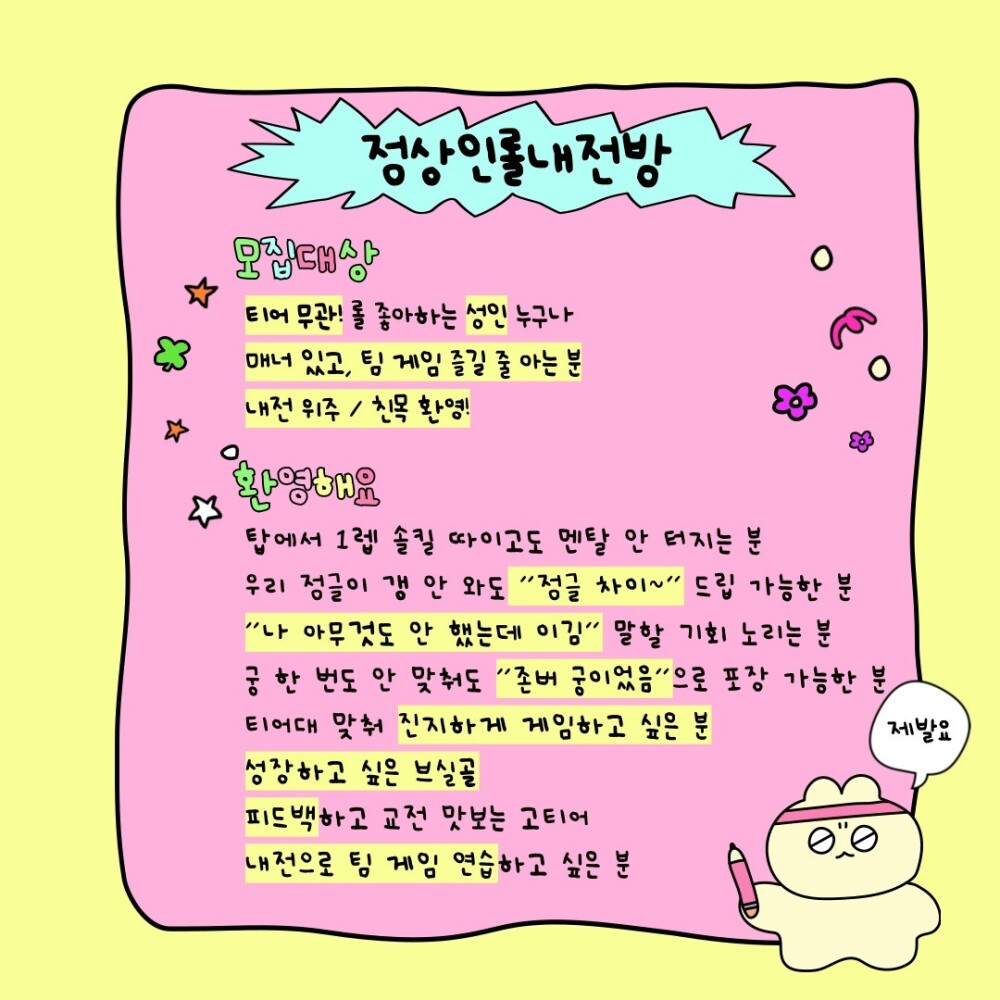 정상인롤내전방
모집대상
티어 무관! 롤 좋아하는 성인 누구나
매너 있고, 팀 게임 즐길 줄 아는 분
내전 위주 / 친목 환영!
환영해요
탑에서 1렙 솔킬 따이고도 멘탈 안 터지는 분
우리 정글이 갱 안 와도 "정글 차이~" 드립 가능한 분
"나 아무것도 안 했는데 이김" 말할 기회 노리는 분
궁 한 번도 안 맞춰도 "존버 궁이었음"으로 포장 가능한 분
티어대 맞춰 진지하게 게임하고 싶은 분
성장하고 싶은 브실골
피드백하고 교전 맛보는 고티어
내전으로 팀 게임 연습하고 싶은 분
제발요